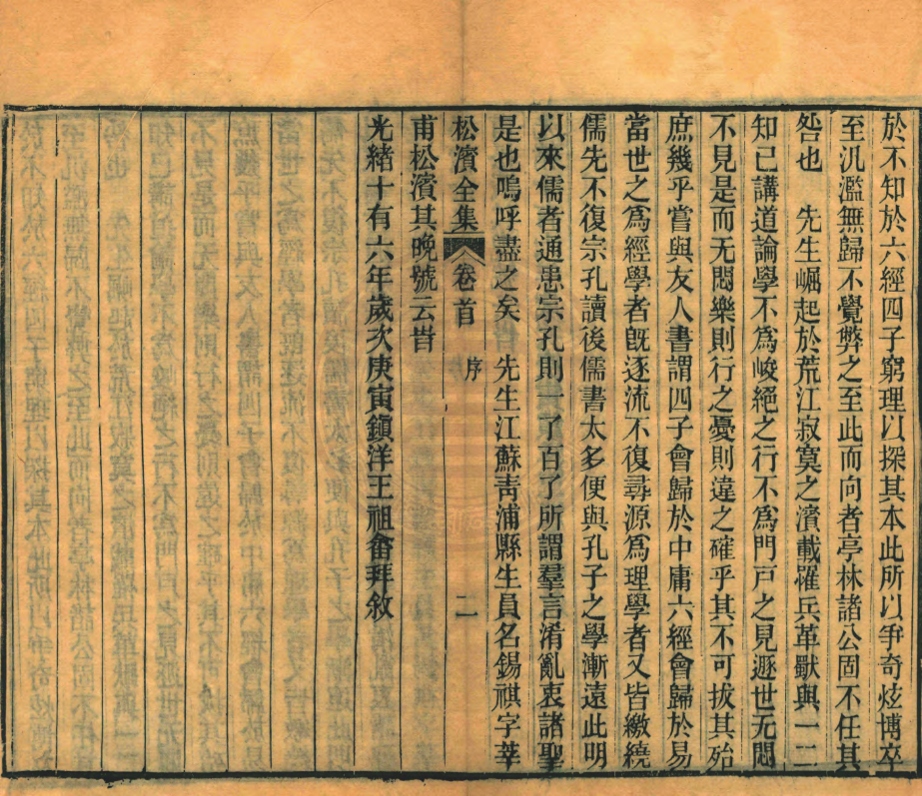 於不知於六經四子窮理以探其本此所以爭奇炫博卒
至汎濫無歸不覺弊之至此而向者亭林諸公固不任其
咎也　先生崛起於荒江寂寞之濱載罹兵革獸與一二
知己講道論學不爲峻絕之行不爲門戸之見遯世无悶
不見是而无悶樂則行之憂則違之確乎其不可拔其殆
庶幾乎嘗與友人書謂四子會歸於中庸六經會歸於易
當世之爲經學者旣逐流不復尋源爲理學者又皆繳繞
儒先不復宗孔讀後儒書太多便與孔子之學漸遠此明
以來儒者通患宗孔則一了百了所謂羣言淆亂衷諸聖
是也嗚呼盡之矣　先生江蘇靑浦縣生員名錫祺字莘
松濱全集 卷首　序　二
甫松濱其晚號云旹
光緒十有六年歲次庚寅鎭洋王祖畬拜敘